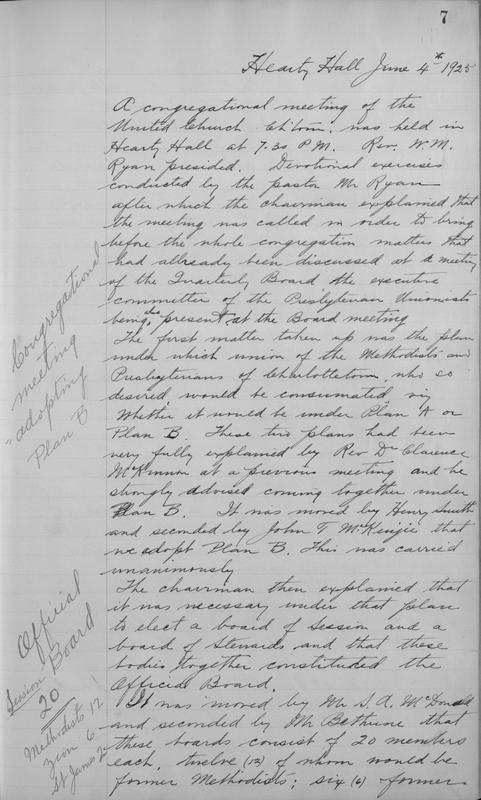 7
Hearty Hall June 4th 1925
A congregational meeting of the
United Church Ch'town. was held in
Hearty Hall at 7.30 P.M. Rev. W.M.
Ryan presided. Devotional exercises
conducted by the pastor Mr Ryan
after which the chairman explained that
the meeting was called in order to bring
before the whole congregation matters that
had allready been discussed at a meeting
of the Quarterly Board the executive
committee of the Presbyterian Unionists
being also present at the Board meeting
The first matter taken up was the plan
under which union of the Methodists and
Presbyterians of Charlottetown, who so
desired would be consumated viz
Whether it would be under Plan A or
Plan B. These two plans had been
very fully explained by Rev Dr Clarence
McKinnon at a previous meeting and he
strongly advised coming together under
Plan B. It was moved by Henry Smith
and seconded by John T. McKenzie that
we adopt Plan B. This was carried
unanimously
The chairman then explained that
it was necessary under that plan
to elect a board of Session and a
board of Stewards and that these
bodies together constituted the
Official Board.
It was moved by Mr S. A. McDonald
and seconded by Mr Bethune that
these boards consist of 20 members
each, twelve (12) of whom would be
former Methodists; six (6) former
Congregational
meeting
adopting
Plan B
Official
Board
Session
20
Methodists 12
Zion 6
St James 2